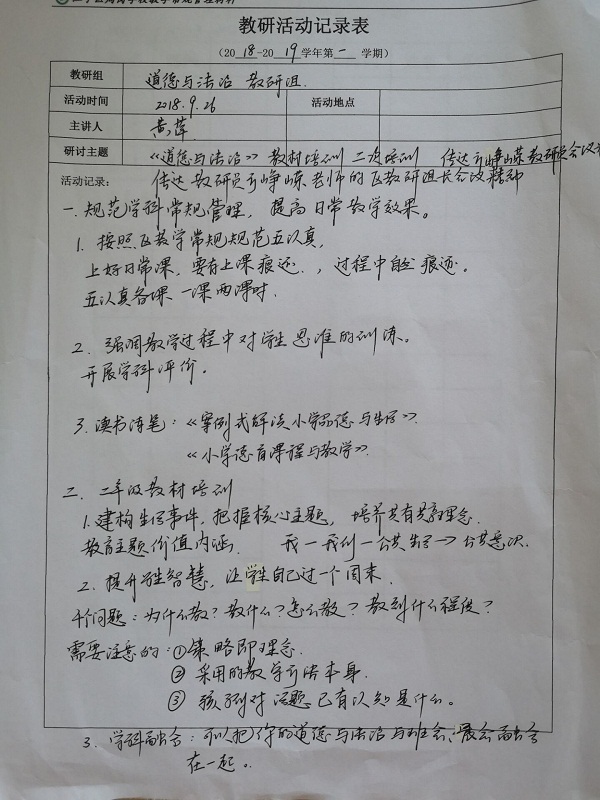 教研活动记录表
（2018-2019学年第一 学期）
教研组 道德与法治 教研组
活动时间 2018.9.26 活动地点
主讲人 黄萍
研讨主题 《道德与法治》教材培训 二次培训 传达方峥嵘教研员会议
活动记录： 传达教研员方峥嵘老师的区教研组长会议精神
一.规范学科常规管理，提高日常教学效果。
1.按照区教学常规规范五认真，
上好日常课，要有上课痕迹.，过程中自然痕迹。
五认真备课 一课两课时.
2.强调教学过程中对学生思维的训练。
开展学科评价。
3.读书随笔：《案例式解读小学品德与生活》.
《小学德育课程与教学》.
二.二年级教材培训
1.建构生活事件，把握核心主题，培养共有共享理念.
教育主题价值内涵. 我一我们一公共生活→公共意识.
2.提升学生智慧，让学生自己过一个周末.
4个问题：为什么教？教什么？怎么教？教到什么程度？
需要注意的：①策略即理念.
②采用的教学方法本身.
③孩子对话题已有认知是什么。
3.学科融合：可以把你的道德与法治与班会，晨会融合
在一起。